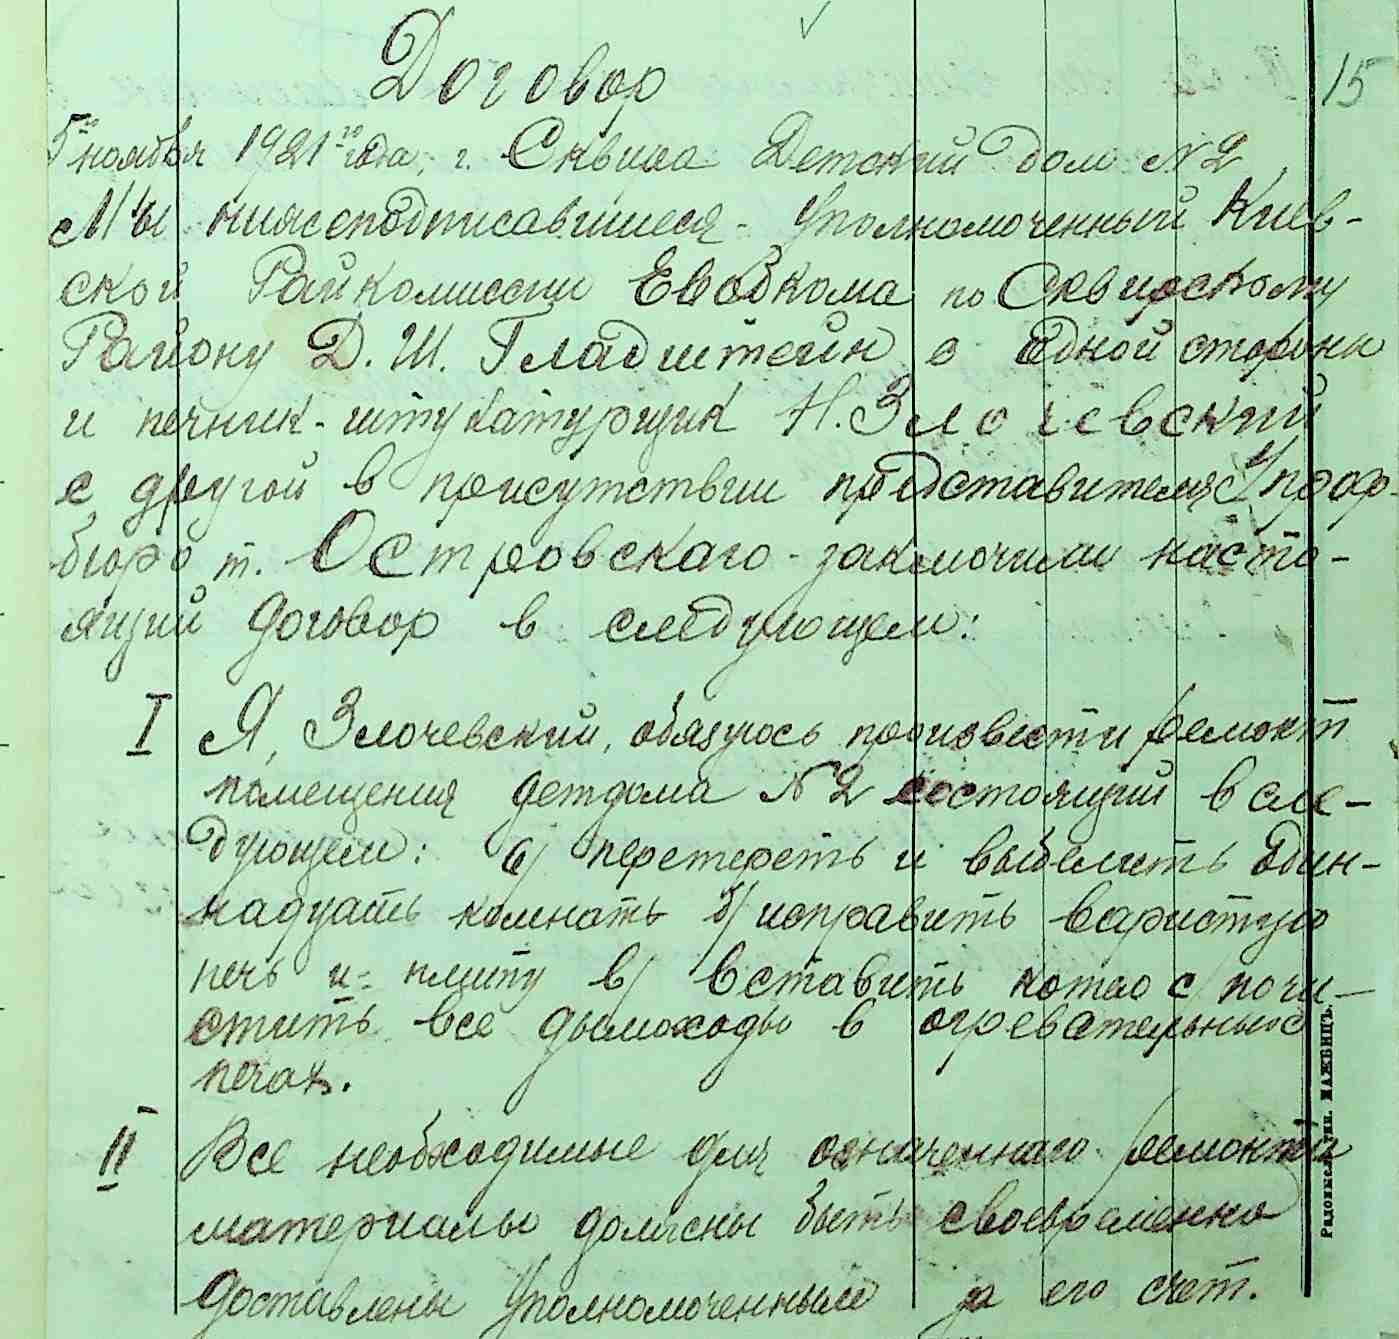 15
Договор
5го ноября 1921го года, г. Сквира Детский дом N2
Мы нижеподписавшиеся - Уполномоченный Киев-
ской Райкомиссии Евобкома по Сквирскому
Району Д. Ш. Гладштейн с одной стороны
и печник-штукатурщик Н. Злочевский
с другой в присутствии представителя Упроф-
бюро т. Островскаго - заключили насто-
ящий договор в следующем:
I Я, Злочевский, обязуюсь произвести ремонт
помещения детдома N2 состоящий в сле-
дующем: а) перетереть и выбелить один-
надцать комнать б) исправить варистую
печь и плиту в) вставить котел с почи-
стить все дымоходы в огревательных
печах.
II Все необходимые для означеннаго ремонта
материалы должны быть своевременно
доставлены Уполномоченным за его счет.